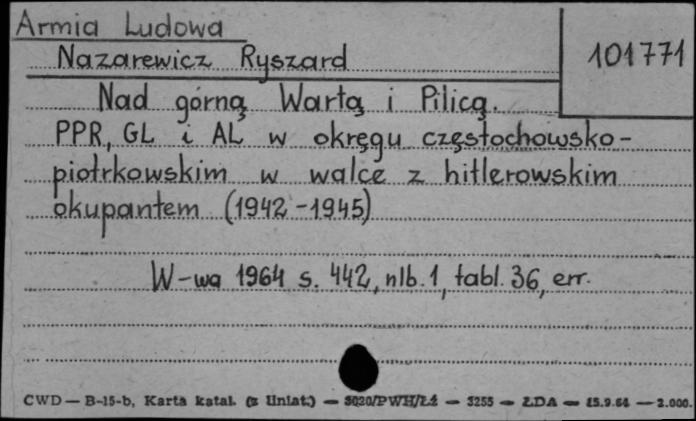 Armia Ludowa
Nazarewicz Ryszard
101771
Nad górną Wartą i Pilicą.
PPR, GL i AL w okręgu częstochowsko-
piotrkowskim w walce z hitlerowskim
okupantem (1942-1945)
W-wa 1964 s. 442, nlb. 1, tabl. 36, err.
CWD — B-15-b, Karta katal. (z liniat.) — 3020/PWH/Łł — 3255 — ŁDA — 15.9.64 — 2.000.